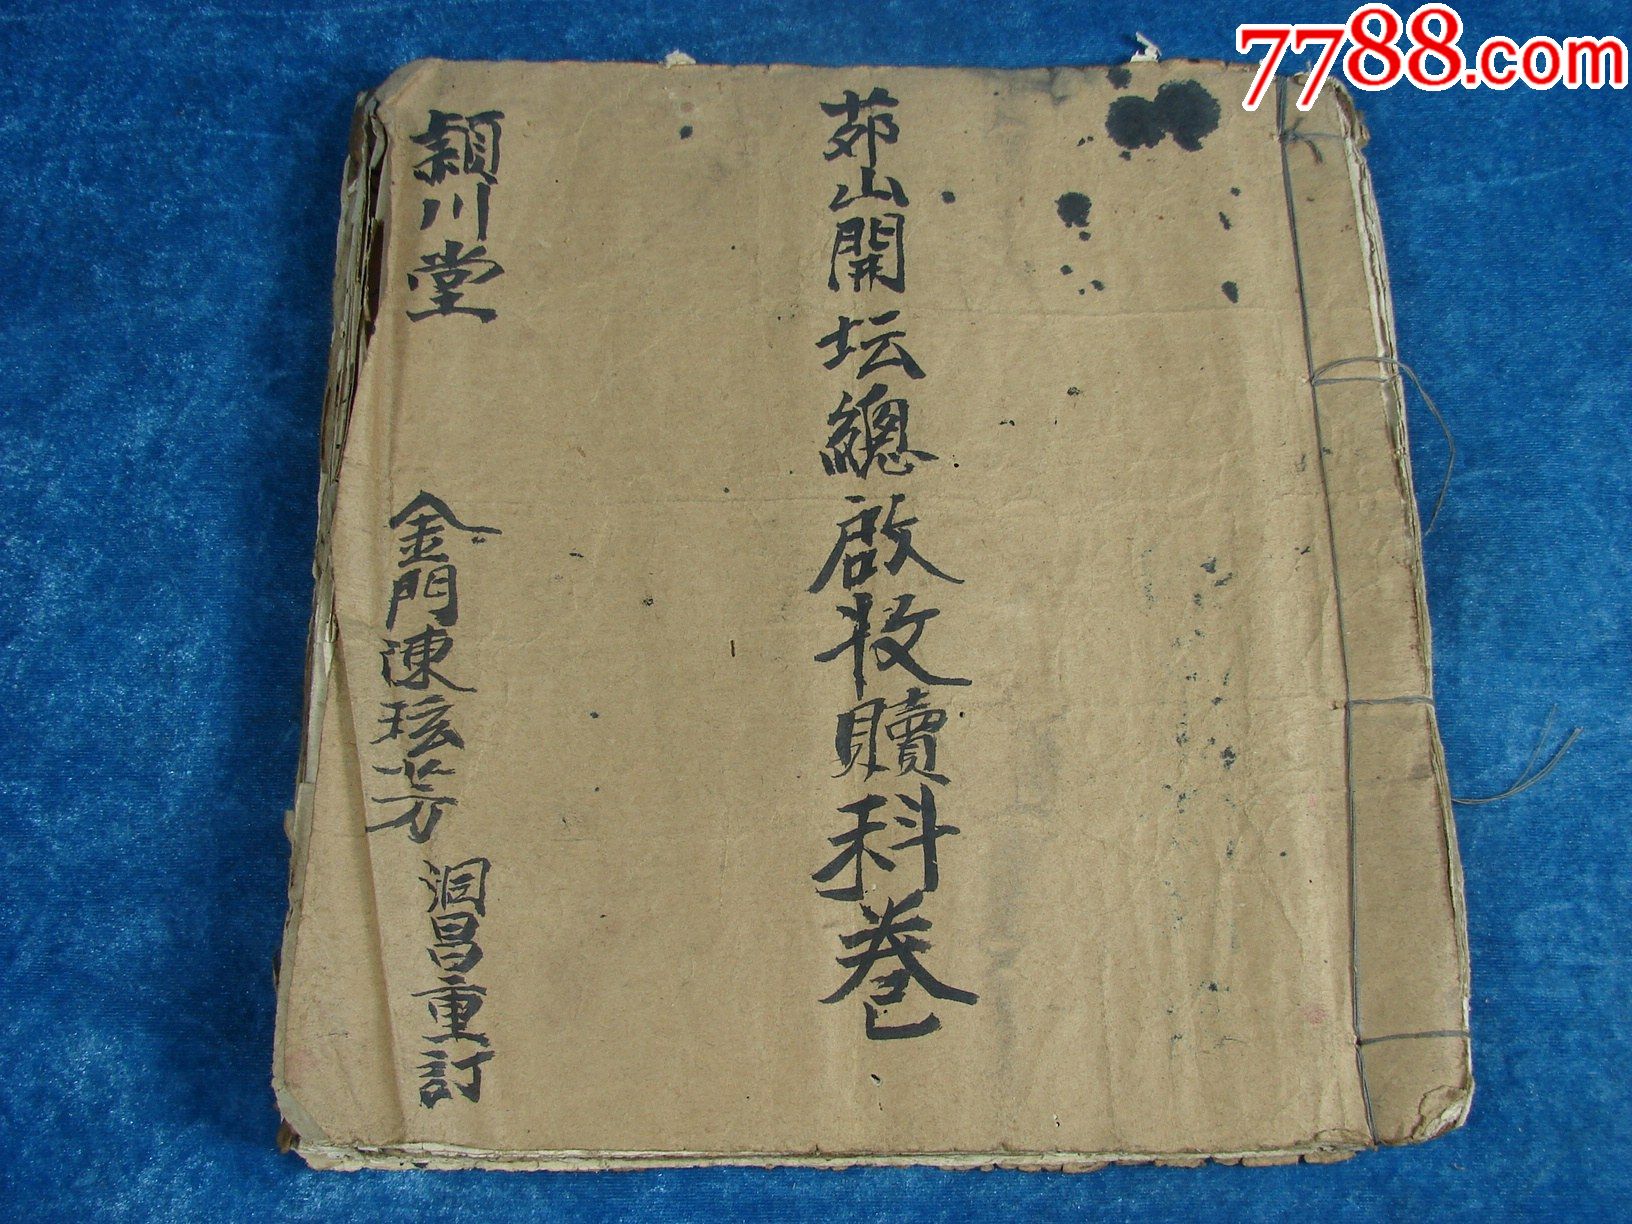 7788.com
茆山開坛總啟收贖科卷
頴川堂
金門陳玹芳
洞昌重訂